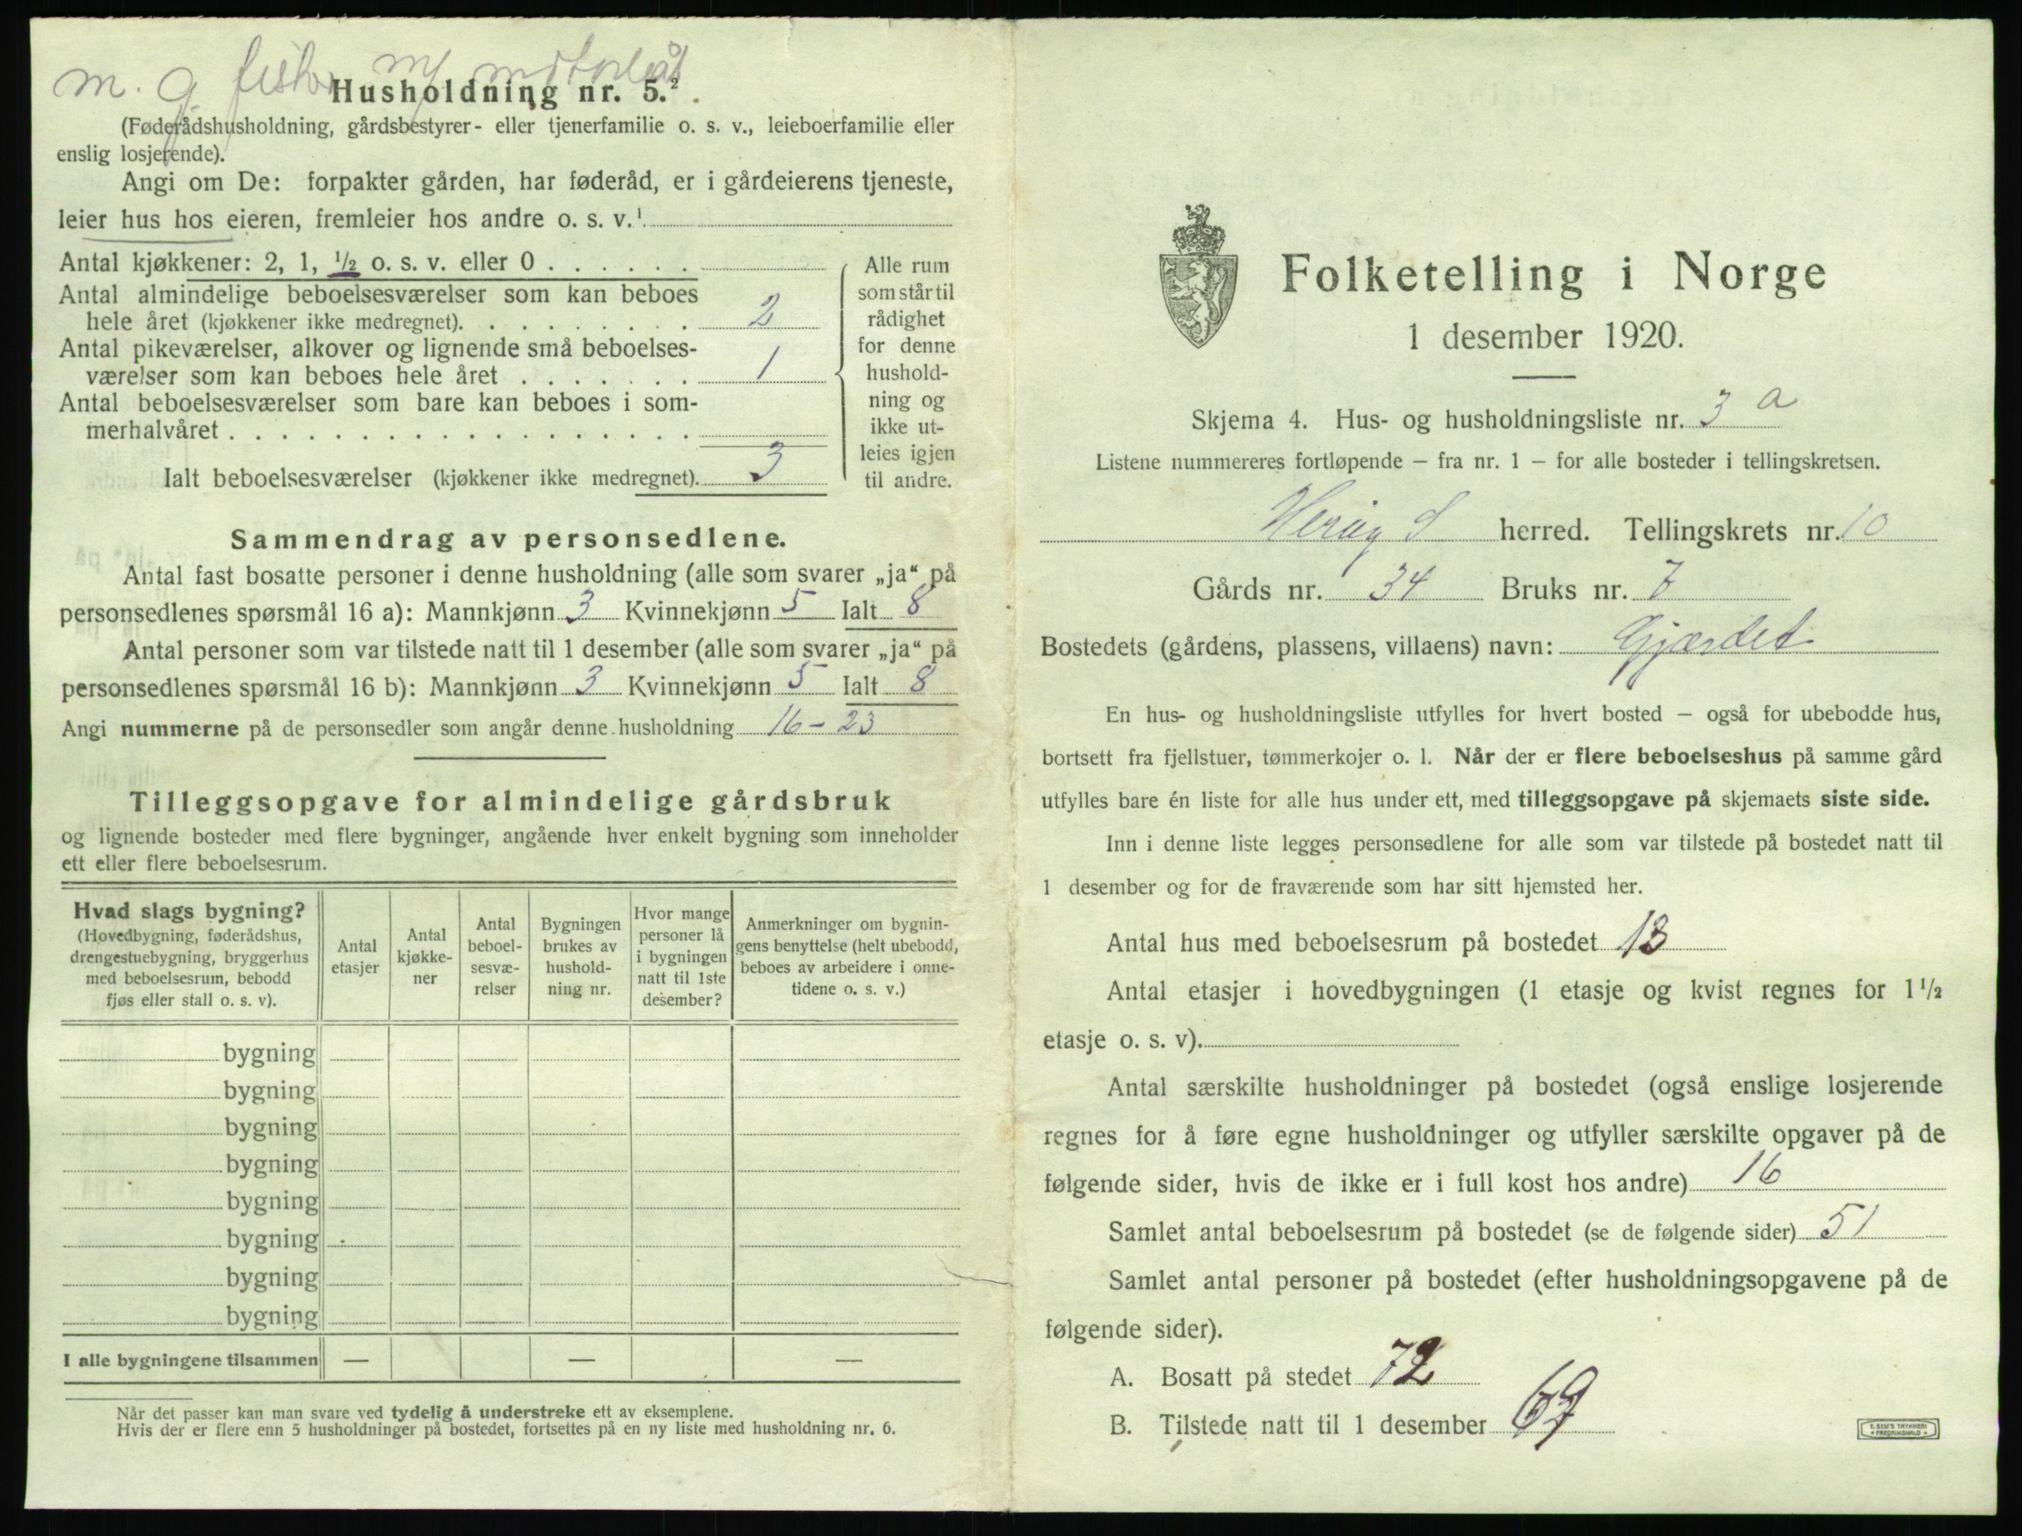 m. g. fisker m/ motorbåt
Husholdning nr. 5.²
(Føderådshusholdning, gårdsbestyrer- eller tjenerfamilie o. s. v., leieboerfamilie eller
enslig losjerende).
Angi om De: forpakter gården, har føderåd, er i gårdeierens tjeneste,
leier hus hos eieren, fremleier hos andre o. s. v.¹
Antal kjøkkener: 2, 1, ½ o. s. v. eller 0 . . . . . .
Antal almindelige beboelsesværelser som kan beboes
hele året (kjøkkener ikke medregnet). . . . . . . . . 2
Antal pikeværelser, alkover og lignende små beboelses-
værelser som kan beboes hele året . . . . . . . 1
Antal beboelsesværelser som bare kan beboes i som-
merhalvåret . . . . . . . . . . . . . . . . . .
Ialt beboelsesværelser (kjøkkener ikke medregnet). 3
Alle rum
som står til
rådighet
for denne
hushold-
ning og
ikke ut-
leies igjen
til andre.
Sammendrag av personsedlene.
Antal fast bosatte personer i denne husholdning (alle som svarer „ja“ på
personsedlenes spørsmål 16 a): Mannkjønn 3 Kvinnekjønn 5 Ialt 8
Antal personer som var tilstede natt til 1 desember (alle som svarer „ja“ på
personsedlenes spørsmål 16 b): Mannkjønn 3 Kvinnekjønn 5 Ialt 8
Angi nummerne på de personsedler som angår denne husholdning 16 – 23
Tilleggsopgave for almindelige gårdsbruk
og lignende bosteder med flere bygninger, angående hver enkelt bygning som inneholder
ett eller flere beboelsesrum.
Hvad slags bygning?
(Hovedbygning, føderådshus,
drengestuebygning, bryggerhus
med beboelsesrum, bebodd
fjøs eller stall o. s. v).
Antal
etasjer
Antal
kjøkke-
ner
Antal
beboel-
sesvæ-
relser
Bygningen
brukes av
hushold-
ning nr.
Hvor mange
personer lå
i bygningen
natt til 1ste
desember?
Anmerkninger om bygnin-
gens benyttelse (helt ubebodd,
beboes av arbeidere i onne-
tidene o. s. v.)
bygning
bygning
bygning
bygning
bygning
bygning
bygning
bygning
I alle bygningene tilsammen — — —
Når det passer kan man svare ved tydelig å understreke ett av eksemplene.
Hvis der er flere enn 5 husholdninger på bostedet, fortsettes på en ny liste med husholdning nr. 6.
Folketelling i Norge
1 desember 1920.
Skjema 4. Hus- og husholdningsliste nr. 3 a
Listene nummereres fortløpende – fra nr. 1 – for alle bosteder i tellingskretsen.
Herøy S herred. Tellingskrets nr. 10
Gårds nr. 34 Bruks nr. 7
Bostedets (gårdens, plassens, villaens) navn: Gjærdet
En hus- og husholdningsliste utfylles for hvert bosted – også for ubebodde hus,
bortsett fra fjellstuer, tømmerkojer o. l. Når der er flere beboelseshus på samme gård
utfylles bare én liste for alle hus under ett, med tilleggsopgave på skjemaets siste side.
Inn i denne liste legges personsedlene for alle som var tilstede på bostedet natt til
1 desember og for de fraværende som har sitt hjemsted her.
Antal hus med beboelsesrum på bostedet 13
Antal etasjer i hovedbygningen (1 etasje og kvist regnes for 1½
etasje o. s. v).
Antal særskilte husholdninger på bostedet (også enslige losjerende
regnes for å føre egne husholdninger og utfyller særskilte opgaver på de
følgende sider, hvis de ikke er i full kost hos andre) 16
Samlet antal beboelsesrum på bostedet (se de følgende sider) 51
Samlet antal personer på bostedet (efter husholdningsopgavene på de
følgende sider).
A. Bosatt på stedet 72
B. Tilstede natt til 1 desember 69
E. SEM'S TRYKKERI
FREDRIKSHALD